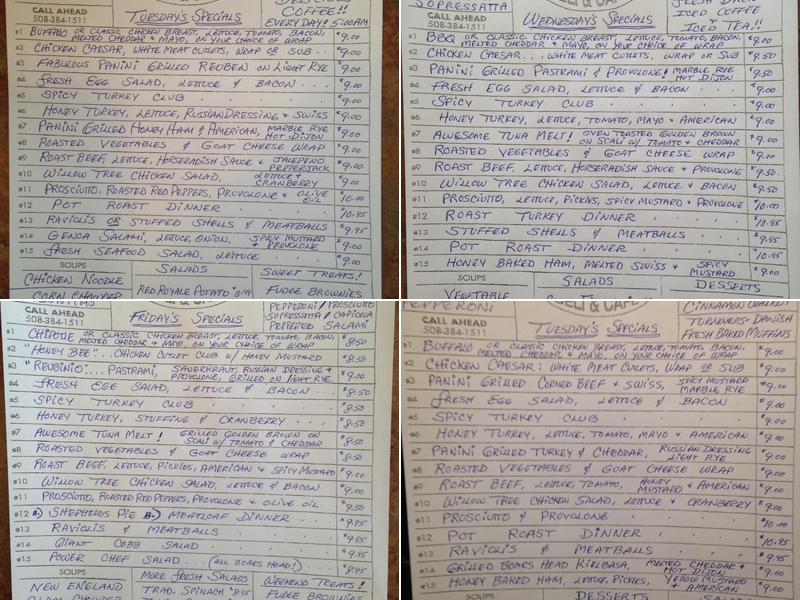 COFFEE!!
CALL AHEAD
508-384-1511
TUESDAY'S SPECIALS
EVERY DAY! 5:00AM
#1 BUFFALO OR CLASSIC CHICKEN BREAST, LETTUCE, TOMATO, BACON, MELTED CHEDDAR & MAYO, ON YOUR CHOICE OF WRAP $9.00
#2 CHICKEN CAESAR, WHITE MEAT CUTLETS, WRAP OR SUB $9.00
#3 FABULOUS PANINI GRILLED REUBEN ON LIGHT RYE $9.00
#4 FRESH EGG SALAD, LETTUCE & BACON $9.00
#5 SPICY TURKEY CLUB $9.00
#6 HONEY TURKEY, LETTUCE, RUSSIAN DRESSING & SWISS $9.00
#7 PANINI GRILLED HONEY HAM & AMERICAN, MARBLE RYE HOT DIJON $9.00
#8 ROASTED VEGETABLES & GOAT CHEESE WRAP $9.00
#9 ROAST BEEF, LETTUCE, HORSERADISH SAUCE & JALEPENO PEPPERJACK $9.00
#10 WILLOW TREE CHICKEN SALAD, LETTUCE & CRANBERRY $9.00
#11 PROSCIUTTO, ROASTED RED PEPPERS, PROVOLONE & OLIVE OIL $10.00
#12 POT ROAST DINNER $10.95
#13 RAVIOLIS OR STUFFED SHELLS & MEATBALLS $9.95
#14 GENOA SALAMI, LETTUCE, ONION, SPICY MUSTARD & PROVOLONE $9.00
#15 FRESH SEAFOOD SALAD, LETTUCE $9.00
SOUPS SALADS SWEET TREATS!
CHICKEN NOODLE RED ROYALE POTATO FUDGE BROWNIES
CORN CHOWDER
SOPRESSATTA
DELI & CAFE
ICED COFFEE
& ICED TEA!!
CALL AHEAD
508-384-1511
WEDNESDAY'S SPECIALS
#1 BBQ OR CLASSIC CHICKEN BREAST, LETTUCE, TOMATO, BACON, MELTED CHEDDAR & MAYO, ON YOUR CHOICE OF WRAP $9.00
#2 CHICKEN CAESAR... WHITE MEAT CUTLETS, WRAP OR SUB $9.50
#3 PANINI GRILLED PASTRAMI & PROVOLONE! MARBLE RYE HOT DIJON $9.50
#4 FRESH EGG SALAD, LETTUCE & BACON $9.00
#5 SPICY TURKEY CLUB $9.00
#6 HONEY TURKEY, LETTUCE, TOMATO, MAYO & AMERICAN $9.00
#7 AWESOME TUNA MELT! OVEN TOASTED GOLDEN BROWN ON SCALI W/ TOMATO & CHEDDAR $9.00
#8 ROASTED VEGETABLES & GOAT CHEESE WRAP $9.00
#9 ROAST BEEF, LETTUCE, HORSERADISH SAUCE & PROVOLONE $9.50
#10 WILLOW TREE CHICKEN SALAD, LETTUCE & BACON $9.50
#11 PROSCIUTTO, LETTUCE, PICKLES, SPICY MUSTARD & PROVOLONE $10.00
#12 ROAST TURKEY DINNER $10.95
#13 STUFFED SHELLS & MEATBALLS $9.95
#14 POT ROAST DINNER $10.95
#15 HONEY BAKED HAM, MELTED SWISS & SPICY MUSTARD $9.00
SOUPS SALADS DESSERTS
VEGETABLE
PEPPERONI / PROSCIUTTO
SOPRESSATTA / CAPICOLA
PEPPERED SALAMI
CALL AHEAD
508-384-1511
FRIDAY'S SPECIALS
#1 CHIPOTLE OR CLASSIC CHICKEN BREAST, LETTUCE, TOMATO, BACON, MELTED CHEDDAR & MAYO, ON YOUR CHOICE OF WRAP $8.50
#2 "HONEY BEE"... CHICKEN CUTLET CLUB W/ HONEY MUSTARD $8.50
#3 "REUBINIO"... PASTRAMI, SAUERKRAUT, RUSSIAN DRESSING & PROVOLONE, GRILLED ON LIGHT RYE $9.00
#4 FRESH EGG SALAD, LETTUCE & BACON $8.50
#5 SPICY TURKEY CLUB $8.50
#6 HONEY TURKEY, STUFFING & CRANBERRY $8.50
#7 AWESOME TUNA MELT! GRILLED GOLDEN BROWN ON SCALI W/ TOMATO & CHEDDAR $8.50
#8 ROASTED VEGETABLES & GOAT CHEESE WRAP $8.50
#9 ROAST BEEF, LETTUCE, PICKLES, AMERICAN & SPICY MUSTARD $9.00
#10 WILLOW TREE CHICKEN SALAD, LETTUCE & BACON $9.00
#11 PROSCIUTTO, ROASTED RED PEPPERS, PROVOLONE & OLIVE OIL $9.50
#12 A) SHEPHERDS PIE B) MEATLOAF DINNER $9.95
#13 RAVIOLIS & MEATBALLS $9.95
#14 GIANT COBB SALAD $9.95
#15 POWER CHEF SALAD... (ALL BOARS HEAD!) $8.95
SOUPS MORE FRESH SALADS WEEKEND TREATS!
NEW ENGLAND TRAD. SPINACH FUDGE BROWNIES
CLAM CHOWDER
PEPPERONI
DELI & CAFE
CINNAMON WALNUT
TURNOVERS - DANISH
FRESH BAKED MUFFINS
CALL AHEAD
508-384-1511
TUESDAY'S SPECIALS
#1 BUFFALO OR CLASSIC CHICKEN BREAST, LETTUCE, TOMATO, BACON, MELTED CHEDDAR & MAYO, ON YOUR CHOICE OF WRAP $9.00
#2 CHICKEN CAESAR: WHITE MEAT CUTLETS, WRAP OR SUB $9.00
#3 PANINI GRILLED CORNED BEEF & SWISS, SPICY MUSTARD MARBLE RYE $9.00
#4 FRESH EGG SALAD, LETTUCE & BACON $9.00
#5 SPICY TURKEY CLUB $9.00
#6 HONEY TURKEY, LETTUCE, TOMATO, MAYO & AMERICAN $9.00
#7 PANINI GRILLED TURKEY & CHEDDAR, RUSSIAN DRESSING LIGHT RYE $9.00
#8 ROASTED VEGETABLES & GOAT CHEESE WRAP $9.00
#9 ROAST BEEF, LETTUCE, TOMATO, HONEY MUSTARD & AMERICAN $9.00
#10 WILLOW TREE CHICKEN SALAD, LETTUCE & CRANBERRY $9.00
#11 PROSCIUTTO & PROVOLONE $10.00
#12 POT ROAST DINNER $10.95
#13 RAVIOLIS & MEATBALLS $9.95
#14 GRILLED BOARS HEAD KIELBASA, MELTED CHEDDAR & HOT DIJON $9.00
#15 HONEY BAKED HAM, LETTUCE, PICKLES, YELLOW MUSTARD & AMERICAN $9.00
SOUPS DESSERTS